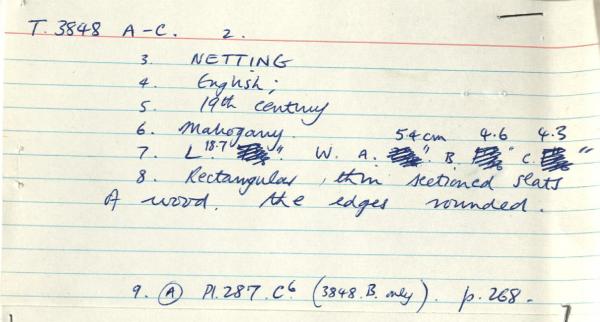 T. 3848 A-C. 2.
3. NETTING
4. English;
5. 19th century
6. Mahogany. 54cm 4.6 4.3
7. L. 18.7 " W. A. " B. " C. "
8. Rectangular, thin sectioned slats
of wood. the edges rounded.
9. (A) Pl.287.C⁶ (3848.B. only). p.268.